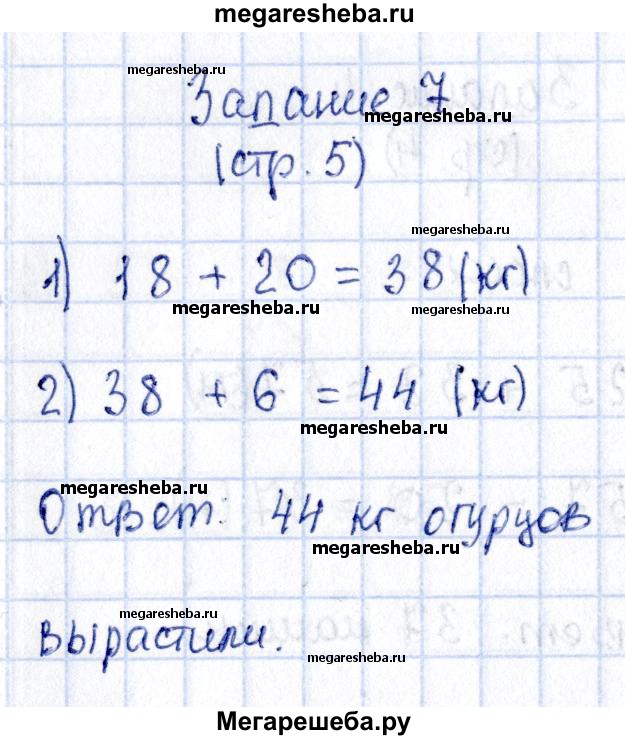 megaresheba.ru
megaresheba.ru
Задание 7
megaresheba.ru
(стр. 5)
megaresheba.ru
1) 18 + 20 = 38 (кг)
megaresheba.ru
megaresheba.ru
2) 38 + 6 = 44 (кг)
megaresheba.ru
megaresheba.ru
Ответ: 44 кг огурцов
megaresheba.ru
megaresheba.ru
вырастили.
megaresheba.ru
Мегарешеба.ру